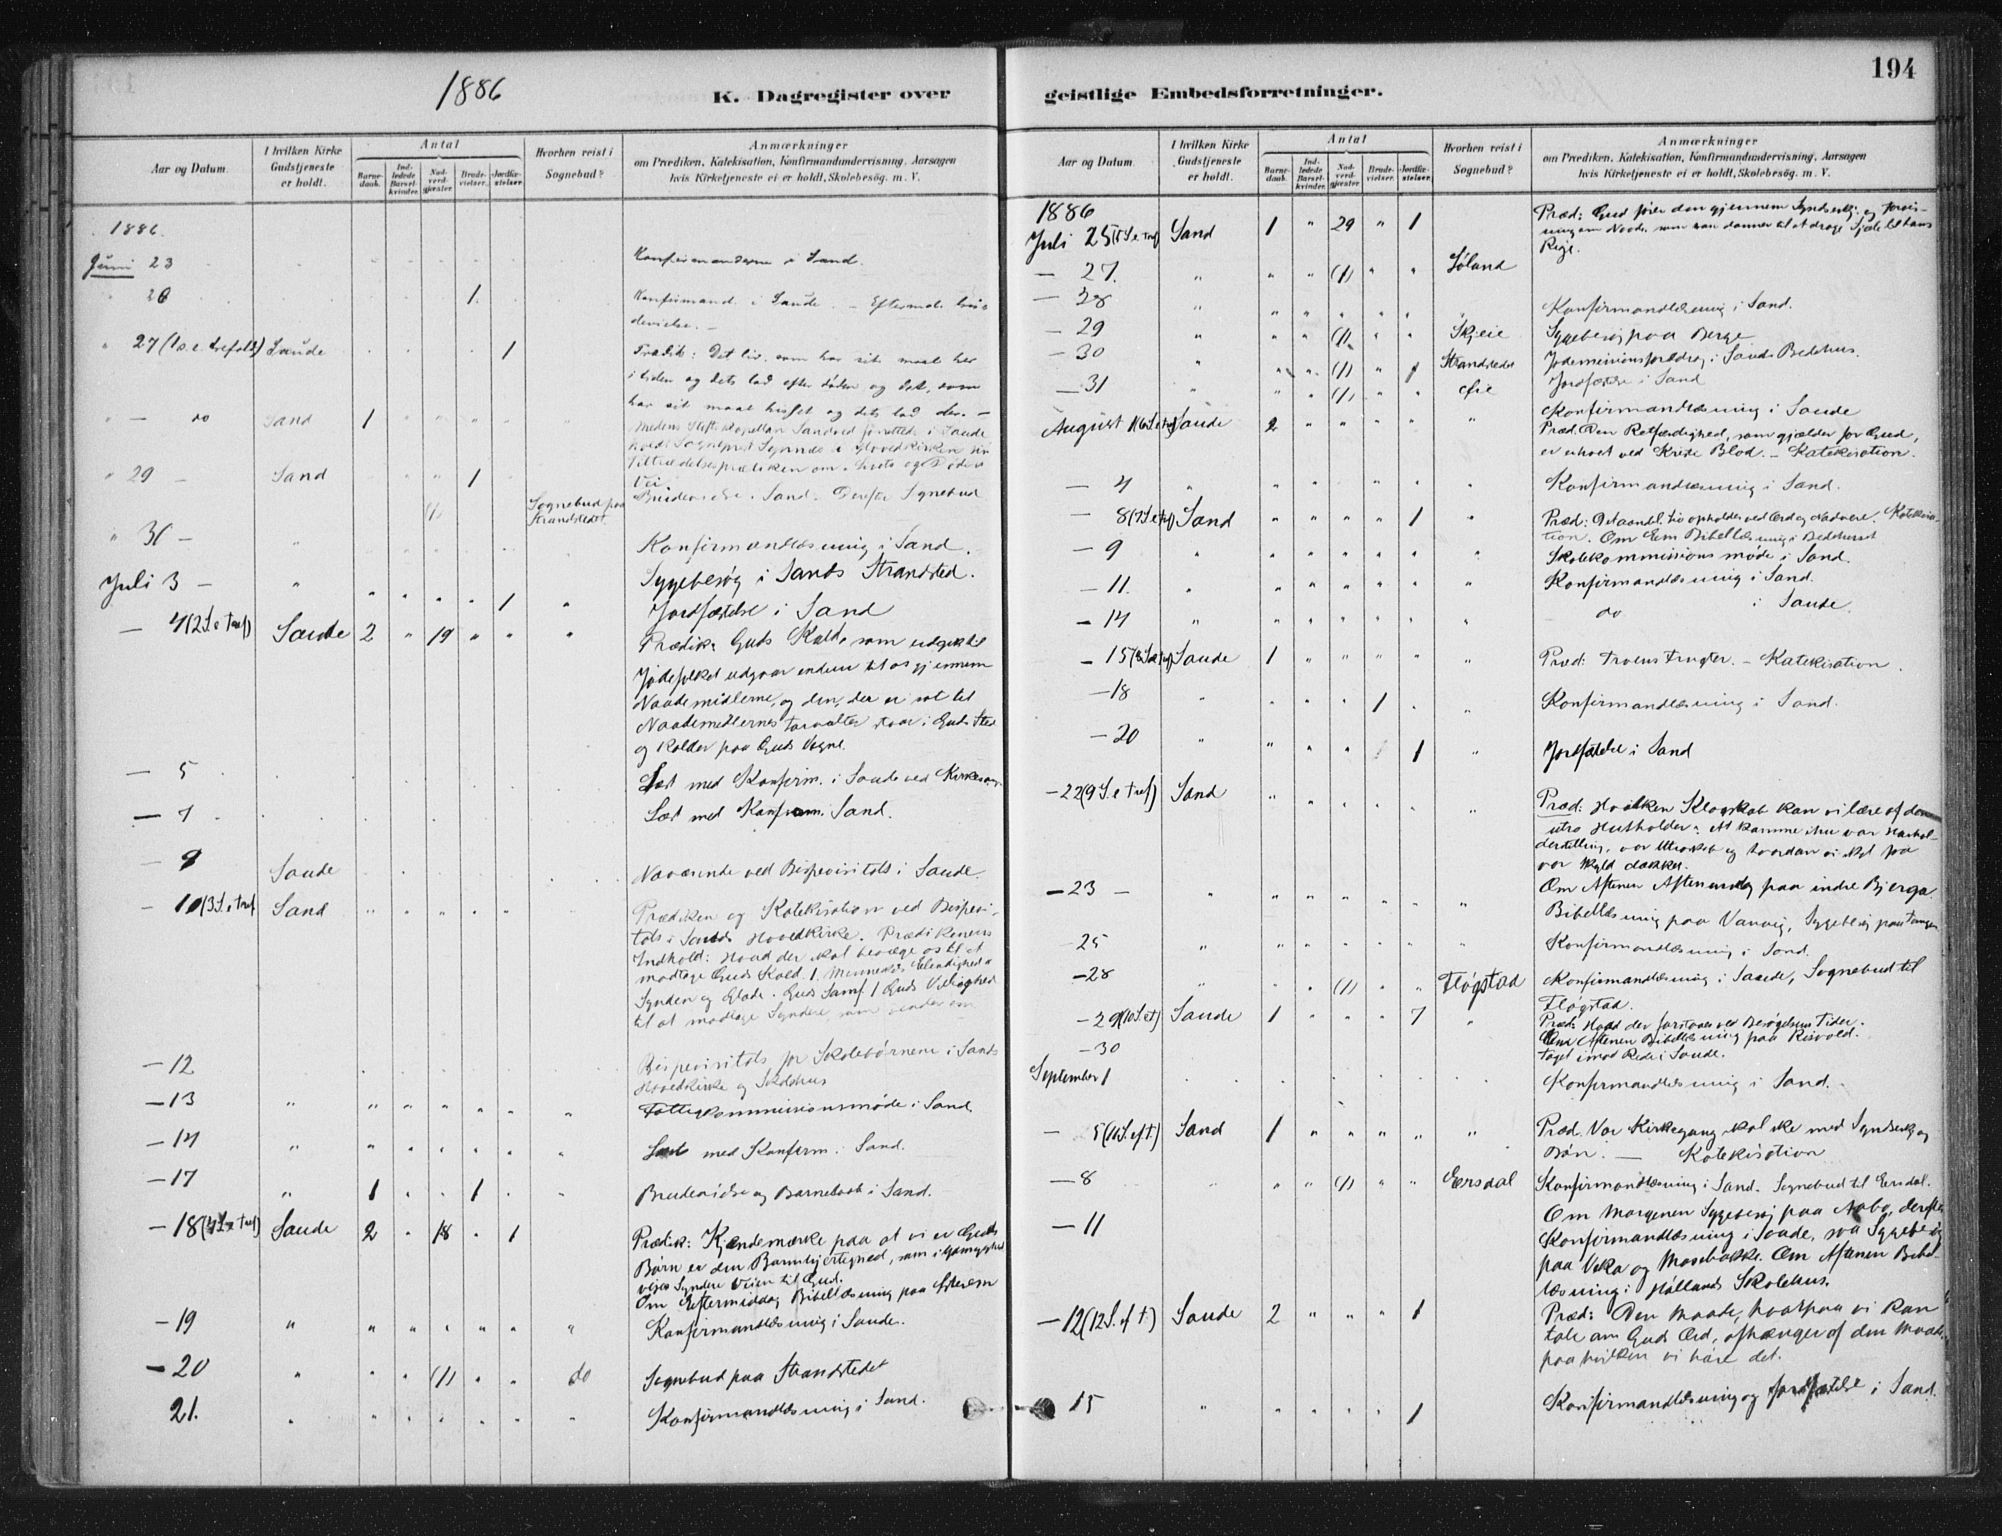 1886
K. Dagregister over
Aar og Datum.
I hvilken Kirke Gudstjeneste er holdt.
Antal
Barnedaab.
Indledede Barselkvinder.
Nadverdgjæster.
Brudevielser.
Jordfæstelser.
Hvorhen reist i Sognebud?
Anmærkninger
om Prædiken, Katekisation, Konfirmandundervisning, Aarsagen
hvis Kirketjeneste ei er holdt, Skolebesøg. m. V.
1886.
Juni 23 Konfirmanderne i Sand.
" 26 1. Konfirmand. i Saude. – Eftermd.
devielse. –
" 27 (1 s. e. trefold) Saude 1 Prædik: Det liv, som har sit maal her
i tiden og dets lød efter døden og det, som
har sit maal hisset og dets lød der. –
" – do Sand 1 Medens Stiftskapellan Sandved forrettede i Saude
holdt Sogneprest i Hovedkirken sin
Tiltrædelsesprædiken om Livets og Dødens
Vei.
" 29 – Sand 1 Brudevielse i Sand. Derefter Sognebud
(1) Sognebud paa Strandstedet.
" 31 – " Konfirmandlæsning i Sand.
Juli 3 – " Sygebesøg i Sands Strandsted.
" " " " 1 " Jordfæstelse i Sand
– 4 (2 S. e Tref) Saude 2 " 19 " " " Prædik: Guds Kald, som udgik til
Jødefolket udgaar endnu til os gjennem
Naademidlerne, og den, der er sat til
Naademidlernes Forvalter staar i Guds Sted
og kalder paa Guds Vegne.
– 5 Læst med Konfirm. i Saude ved Kirkesang.
– 7 Læst med Konfirm. Sand.
– 9 Saude Nærværende ved Bispevisitats i Saude.
– 10 (3 S. e Tref Sand " " " " " Prædiken og Katekisation ved Bispevi-
tats i Sands Hovedkirke. Prædikenens
Indhold: Hvad der skal bevæge os til at
modtage Guds Kald. 1. Menneskets Elendighed i
Synden og Glæde i Guds Samf. 1 Guds Villighed
til at modtage Syndere, som vender om
– 12 Bispevisitats for Skolebørnene i Sands
Hovedkirke og Skolehus
– 13 " " " " " " " Fattigkommissionsmøde i Sand.
– 14 " " " " " " " Læst med Konfirm. i Sand.
– 17 " 1 " " 1 " " Brudevielse og Barnedaab i Sand.
– 18 (4 S. e Tref) Saude 2 " 18 " 1 Prædik: Kjendemærke paa at vi er Guds
Børn er den Barmhjertighed, som i Ydmyghed
viser Syndere Veien til Gud.
Om Eftermiddag Bibellæsning paa
– 19 " " " " " " " Konfirmandlæsning i Saude.
– 20 " " " (1) " " do Sognebud paa Strandstedet
21. " " " " " " " Konfirmandlæsning i Sand.
194
geistlige Embedsforretninger.
Aar og Datum
I hvilken Kirke Gudstjeneste er holdt.
Antal
Barnedaab.
Indledede Barselkvinder.
Nadverdgjæster
Brudevielser.
Jordfæstelser.
Hvorhen reist i Sognebud?
Anmærkninger
om Prædiken, Katekisation, Konfirmandundervisning, Aarsagen
hvis Kirketjeneste ei er holdt, Skolebesøg. m. V.
1886
Juli 25 (5 S. e Tref Sand 1 " 29 " 1 Præd: Gud fører den gjennem og
som han danner til at drage Sjæle til hans
Rige.
– 27. " " " (1) " " Søland
– 28 " " " " " " " Konfirmandlæsning i Sand.
– 29 " " " (1) " " Skjeie Sygebesøg paa Berge
– 30 " " " (1) " 1 Strandstedet Jødemissionsforedrag i Sands Bedehus.
Jordfæstelse i Sand
– 31 " " (1) " " Øie Konfirmandlæsning i Saude
August 1 (6 S. e tref) Saude 2 " " " " " Præd. Den Retfærdighed, som gjælder for Gud,
er erhvervet ved Kristi Blod. – Katekisation.
– 4 " " " " " " " Konfirmandlæsning i Sand.
– 8 (7 S. e tref) Sand " " " " 1 " Præd: Det aandel. Liv opholdes ved Ord og Nadvere. Katekisa-
tion. Om Bibellæsning i Bedehuset
– 9 " " " " " " " Skolekommissions møde i Sand.
– 11. " " " " " " " Konfirmandlæsning i Sand.
– 14 " " " " " " " do i Saude.
– 15 (8 S. e tref) Saude 1 " " " " " Præd: Troens Frugter. – Katekisation.
– 18 " " " " 1 " " Konfirmandlæsning i Sand.
– 20 " " " " 1 " Jordfæstelse i Sand
– 22 (9 S. e Tref) Sand " " " " " " Præd: Hvilken Klogskab kan vi lære af den
utro Husholder: At komme ihu vor Hushol-
derstilling, vor Utroskab og hvordan vi skal faa
vor Skyld dækket.
– 23 – " " " " " " " Om Aftenen paa indre Bjerga
Bibellæsning paa Vanvig, Sygebesøg paa Tangen
25 " " " " " " " Konfirmandlæsning i Sand.
– 28 " " " (1) " " Fløgstad Konfirmandlæsning i Saude, Sognebud til
Fløgstad.
– 29 (10 S. e t) Saude 1 " " " 7 " Præd: Hvad der forstaaes ved Besøgelsens Tider.
Om Aftenen Bibellæsning paa Risvold.
– 30 Taget imod Rede i Saude.
September 1 Konfirmandlæsning i Sand.
– 5 (11 S. eft.) Sand 1 " " " " " Præd. Vor Kirkegang skal ske med Syndserkj og
Bøn. – Katekisation
– 8 " " " (1) " " Eersdal Konfirmandlæsning i Sand. Sognebud til Eersdal.
– 11 Om Morgenen Sygebesøg paa Aabø, derefter
Konfirmandlæsning i Saude, saa Sygebesøg
paa Veka og Mosebakke. Om Aftenen Bibel-
læsning i Høllands Skolehus.
– 12 (12 S. ef t.) Saude 2 " " " 1 Præd: Den Maade, hvorpaa vi kan
tale om Guds Ord, afhænger af den Maade
paa hvilken vi høre det.
– 15 " " " " " 1 Konfirmandlæsning og Jordfæstelse i Sand.